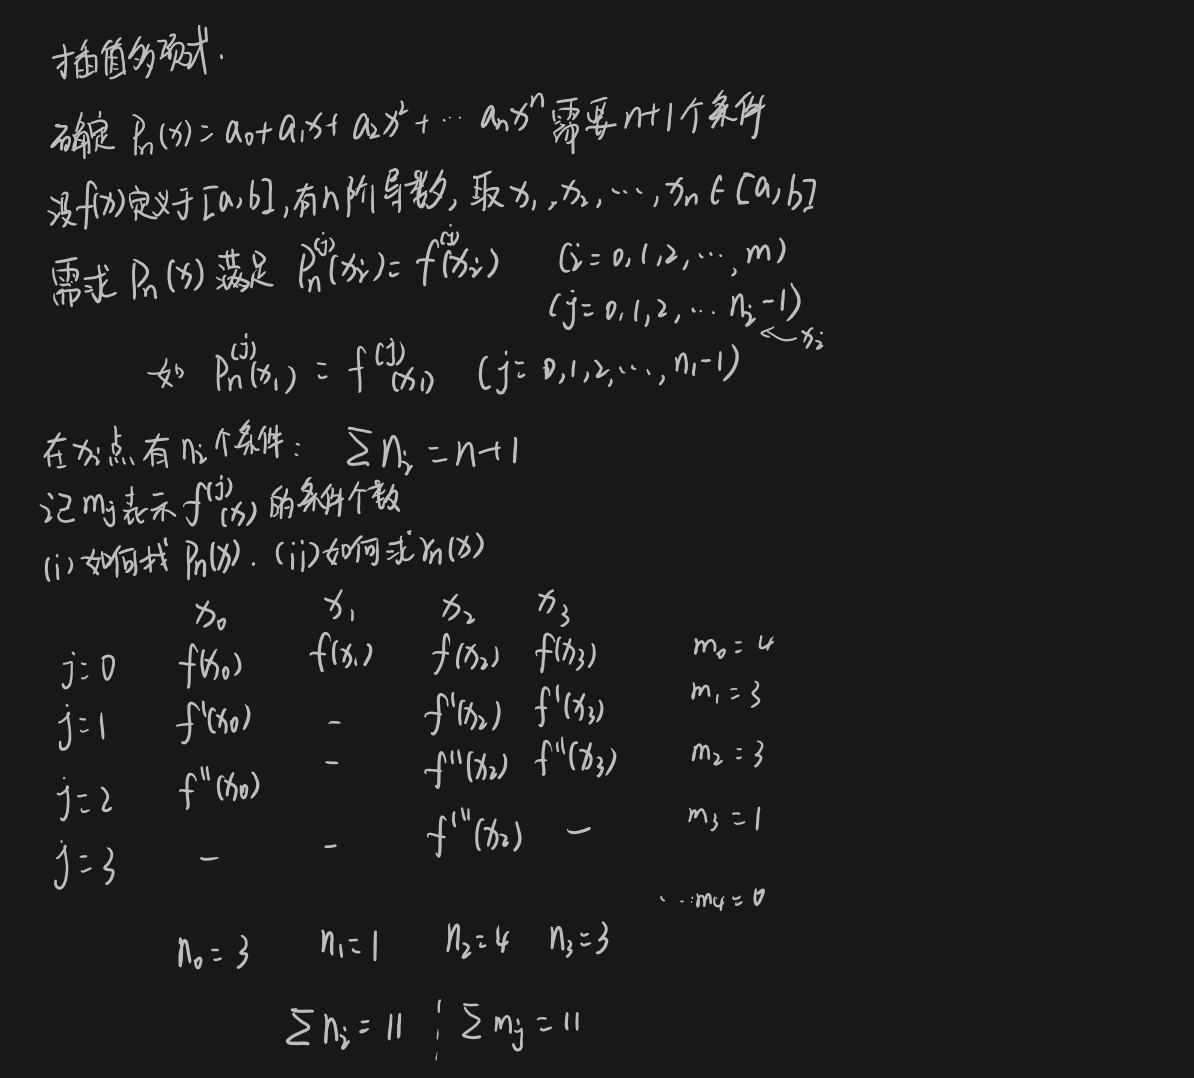 插值多项式.
确定 Pₙ(x) = a₀ + a₁x + a₂x² + ⋯ aₙxⁿ 需要 n+1 个条件
设 f(x) 定义于 [a, b], 有 n 阶导数, 取 x₁, x₂, ⋯, xₙ ∈ [a, b]
需求 Pₙ(x) 满足 Pₙ^(j)(xᵢ) = f^(j)(xᵢ) (i = 0, 1, 2, ⋯, m)
(j = 0, 1, 2, ⋯ nᵢ-1)
← xᵢ
如 Pₙ^(j)(x₁) = f^(j)(x₁) (j = 0, 1, 2, ⋯, n₁-1)
在 xᵢ 点有 nᵢ 个条件: ∑nᵢ = n+1
记 mⱼ 表示 f^(j)(x) 的条件个数
(i) 如何找 Pₙ(x). (ii) 如何求 rₙ(x)
x₀ x₁ x₂ x₃
j=0 f(x₀) f(x₁) f(x₂) f(x₃) m₀ = 4
j=1 f'(x₀) - f'(x₂) f'(x₃) m₁ = 3
j=2 f''(x₀) - f''(x₂) f''(x₃) m₂ = 3
j=3 - - f'''(x₂) - m₃ = 1
⋯m₄ = 0
n₀ = 3 n₁ = 1 n₂ = 4 n₃ = 3
∑nᵢ = 11 ¦ ∑mⱼ = 11